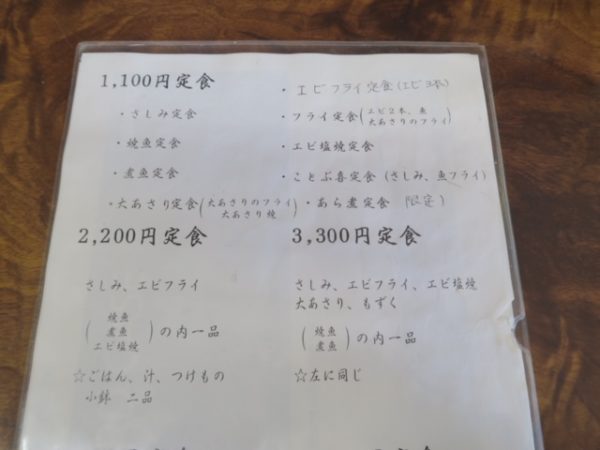 1,100円定食
・さしみ定食
・焼魚定食
・煮魚定食
・大あさり定食(大あさりのフライ
大あさり焼)
・エビフライ定食(エビ3本)
・フライ定食(エビ2本、魚
大あさりのフライ)
・エビ塩焼定食
・ことぶ喜定食(さしみ、魚フライ)
・あら煮定食 限定)
2,200円定食
さしみ、エビフライ
(焼魚
煮魚
エビ塩焼)の内一品
☆ごはん、汁、つけもの
小鉢 二品
3,300円定食
さしみ、エビフライ、エビ塩焼
大あさり、もずく
(焼魚
煮魚)の内一品
☆左に同じ